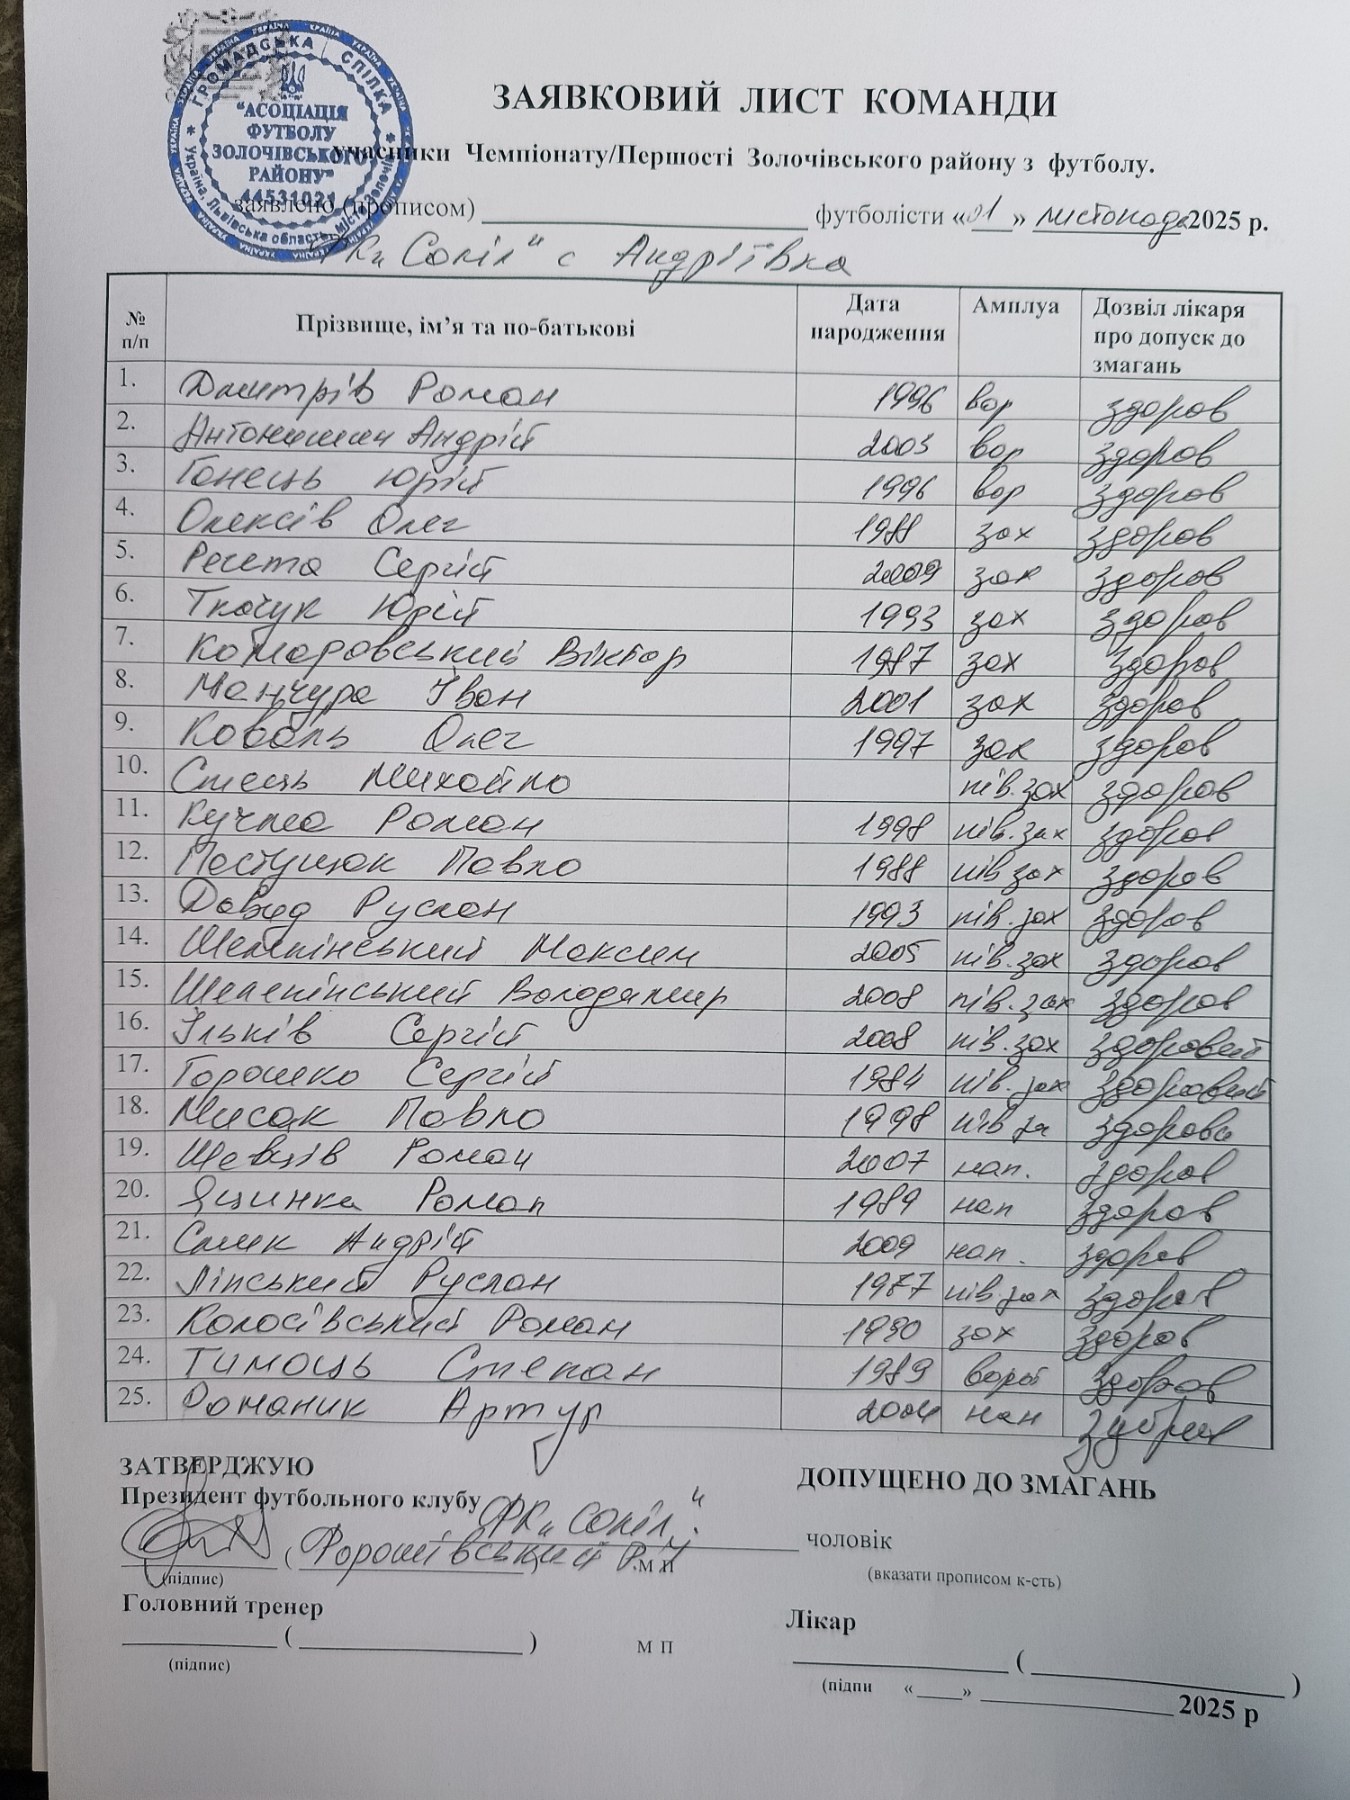 ГРОМАДСЬКА СПІЛКА
"АСОЦІАЦІЯ
ФУТБОЛУ
ЗОЛОЧІВСЬКОГО
РАЙОНУ"
44531021
Україна, Львівська область, місто Золочів
ЗАЯВКОВИЙ ЛИСТ КОМАНДИ
учасники Чемпіонату/Першості Золочівського району з футболу.
заявлено (прописом) футболісти «01» листопада 2025 р.
ФК „Сокіл" с Андріївка
№ п/п Прізвище, ім’я та по-батькові Дата народження Амплуа Дозвіл лікаря про допуск до змагань
1. Дмитрів Роман 1996 вор здоров
2. Антонишин Андрій 2003 вор здоров
3. Гонець Юрій 1996 вор здоров
4. Олексів Олег 1988 зах здоров
5. Регета Сергій 2009 зах здоров
6. Ткачук Юрій 1993 зах здоров
7. Комаровський Віктор 1987 зах здоров
8. Манчура Іван 2001 зах здоров
9. Коваль Олег 1997 зах здоров
10. Стець Михайло пів.зах здоров
11. Кучма Роман 1998 пів.зах здоров
12. Пестущок Павло 1988 пів зах здоров
13. Давид Руслан 1993 пів.зах здоров
14. Шепепінський Максим 2005 пів.зах здоров
15. Шепепінський Володимир 2008 пів.зах здоров
16. Ільків Сергій 2008 пів.зах здоровий
17. Горошко Сергій 1984 пів.зах здоровий
18. Мисак Павло 1998 пів за здоров
19. Шевців Роман 2007 нап. здоров
20. Яцинка Роман 1989 нап здоров
21. Смик Андрій 2009 нап. здоров
22. Лінський Руслан 1987 пів.зах здоров
23. Колосівський Роман 1990 зах здоров
24. Тимоць Степан 1989 ворот здоров
25. Романик Артур 2004 нап
ЗАТВЕРДЖУЮ ДОПУЩЕНО ДО ЗМАГАНЬ
Президент футбольного клубу ФК „Сокіл"
( М П чоловік
(підпис) (вказати прописом к-сть)
Головний тренер Лікар
( ) М П ( )
(підпис) (підпи « » 2025 р